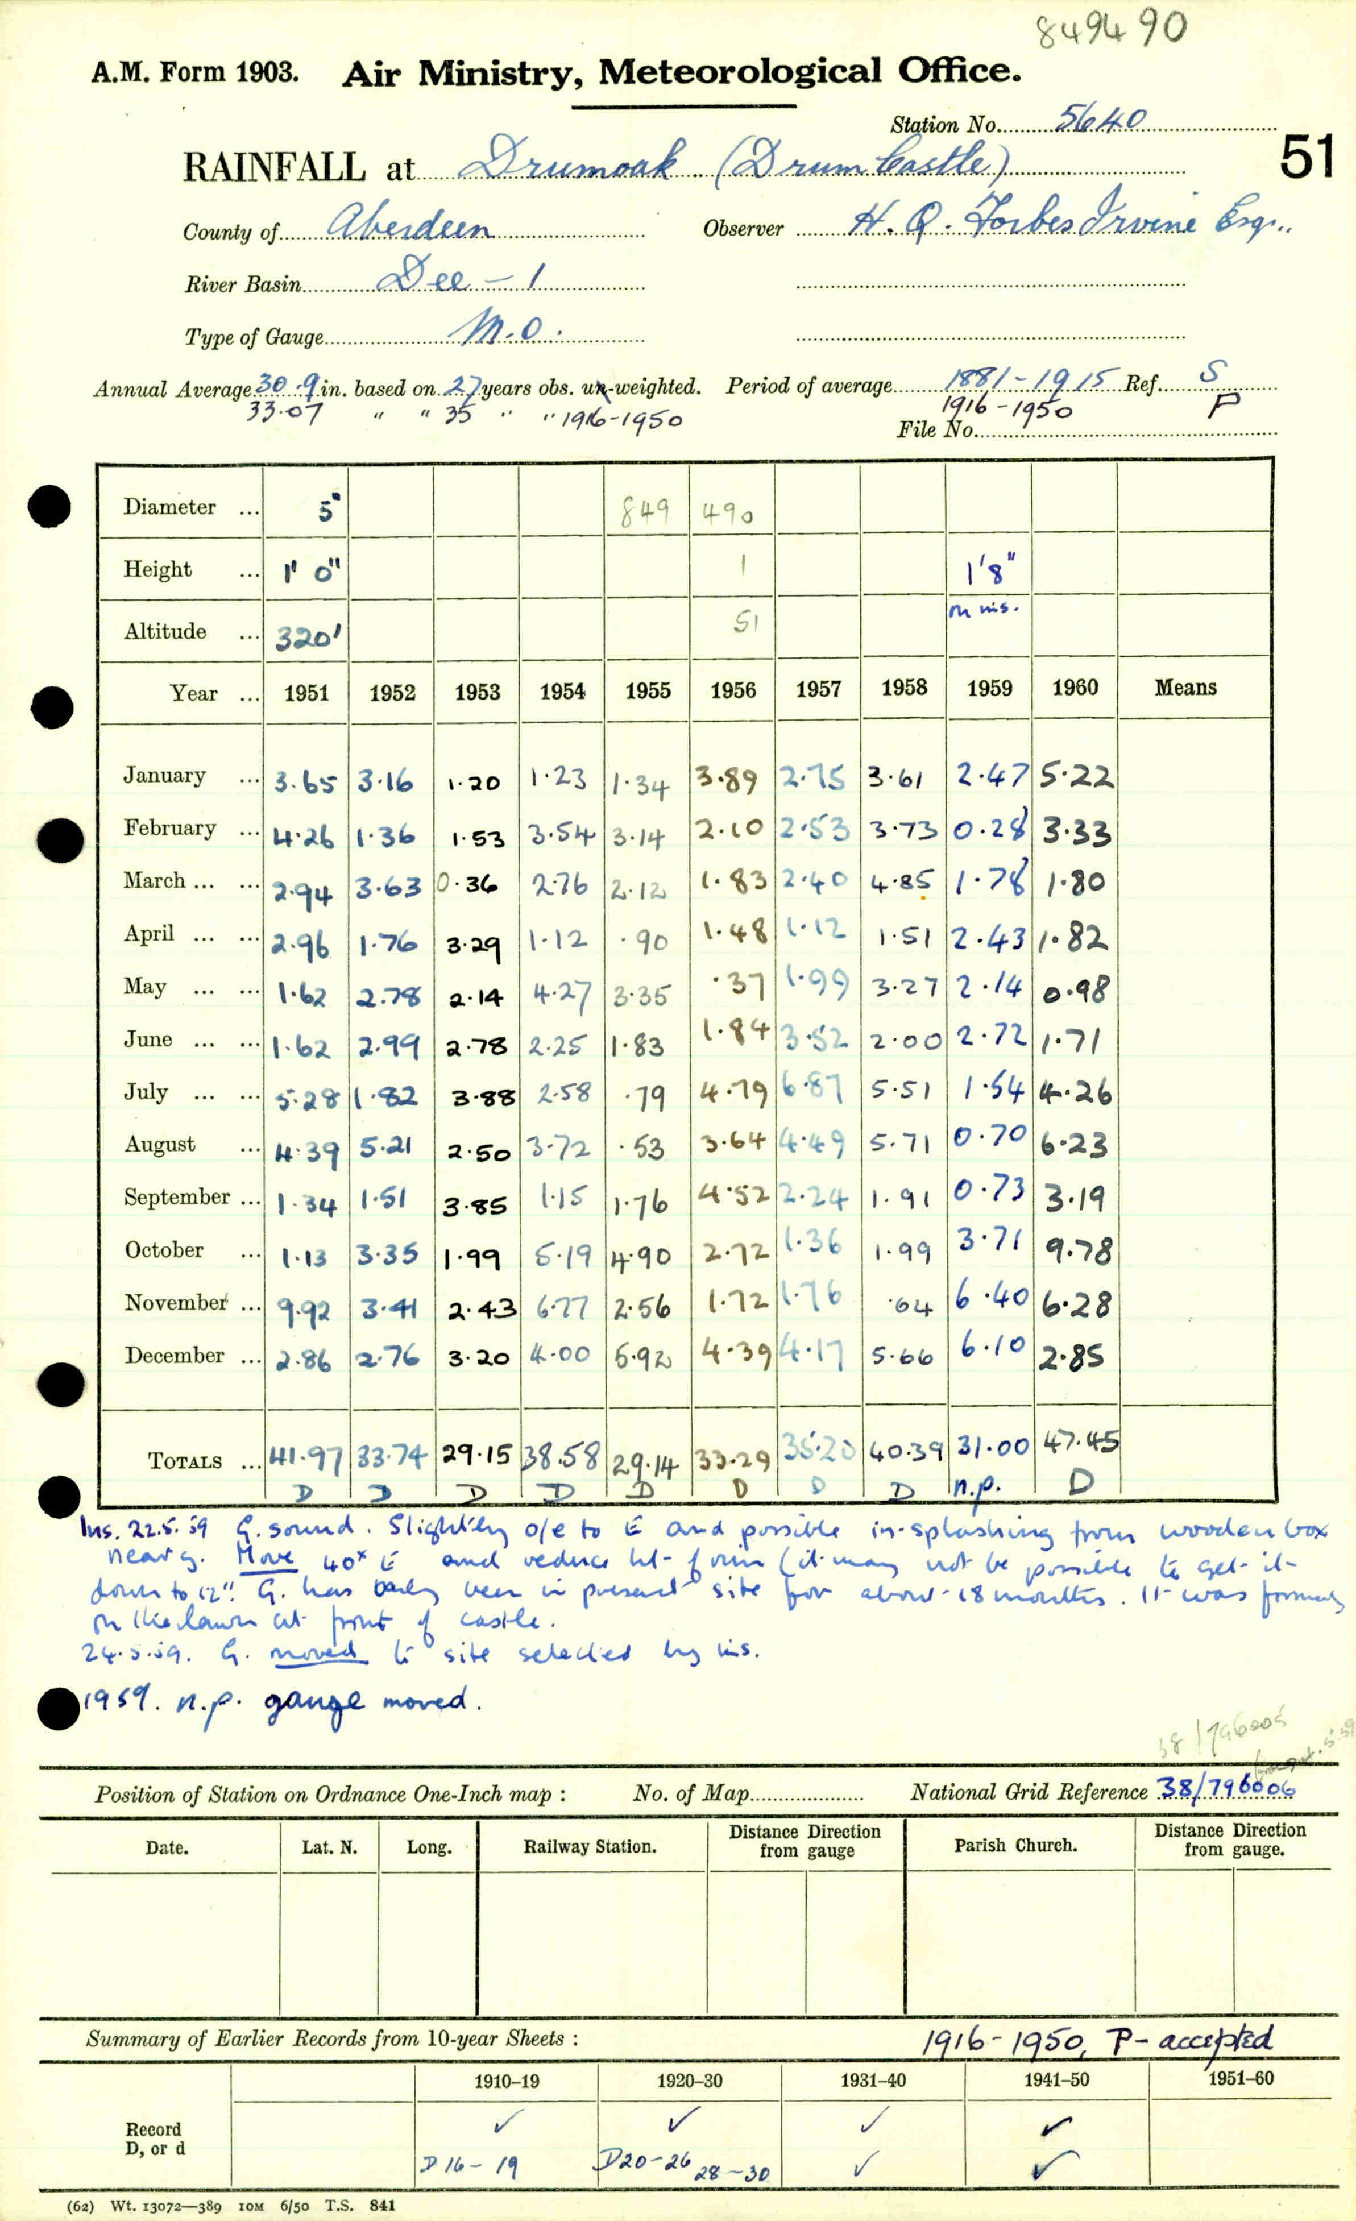 849490
A.M. Form 1903. Air Ministry, Meteorological Office.
Station No. 5640
51
RAINFALL at Drumoak (Drum Castle)
County of Aberdeen Observer H. Q. Forbes Irvine Esq.
River Basin Dee - 1
Type of Gauge M.O.
Annual Average 30.9 in. based on 27 years obs. un-weighted. Period of average 1881-1915 Ref. S
33.07 " " 35 " " 1916-1950 1916-1950 P
File No.
Diameter ... 5" 849 490
Height ... 1' 0" 1 1'8"
on ins.
Altitude ... 320' 51
Year ... 1951 1952 1953 1954 1955 1956 1957 1958 1959 1960 Means
January ... 3.65 3.16 1.20 1.23 1.34 3.89 2.75 3.61 2.47 5.22
February ... 4.26 1.36 1.53 3.54 3.14 2.10 2.53 3.73 0.28 3.33
March ... ... 2.94 3.63 0.36 2.76 2.12 1.83 2.40 4.85 1.78 1.80
April ... ... 2.96 1.76 3.29 1.12 .90 1.48 1.12 1.51 2.43 1.82
May ... ... 1.62 2.78 2.14 4.27 3.35 .37 1.99 3.27 2.14 0.98
June ... ... 1.62 2.99 2.78 2.25 1.83 1.84 3.52 2.00 2.72 1.71
July ... ... 5.28 1.82 3.88 2.58 .79 4.79 6.87 5.51 1.54 4.26
August ... 4.39 5.21 2.50 3.72 .53 3.64 4.49 5.71 0.70 6.23
September ... 1.34 1.51 3.85 1.15 1.76 4.52 2.24 1.91 0.73 3.19
October ... 1.13 3.35 1.99 5.19 4.90 2.72 1.36 1.99 3.71 9.78
November ... 9.92 3.41 2.43 6.77 2.56 1.72 1.76 .64 6.40 6.28
December ... 2.86 2.76 3.20 4.00 5.92 4.39 4.17 5.66 6.10 2.85
TOTALS ... 41.97 33.74 29.15 38.58 29.14 33.29 35.20 40.39 31.00 47.45
D D D D D D D D n.p. D
Ins. 22.5.59 G. sound. Slightly o/e to E and possible in-splashing from wooden box
near g. Move 40x E and reduce ht. of rim (it may not be possible to get it
down to 12". G. has only been in present site for about 18 months. It was formerly
on the lawn at front of castle.
24.5.59. G. moved to site selected by ins.
1959. n.p. gauge moved.
38/796005
Position of Station on Ordnance One-Inch map : No. of Map National Grid Reference 38/796006
Date. Lat. N. Long. Railway Station. Distance Direction from gauge Parish Church. Distance Direction from gauge.
Summary of Earlier Records from 10-year Sheets : 1916-1950, P - accepted
1910-19 1920-30 1931-40 1941-50 1951-60
Record ✓ ✓ ✓ ✓
D, or d D 16-19 D20-26 28-30 ✓ ✓
(62) Wt. 13072—389 10M 6/50 T.S. 841